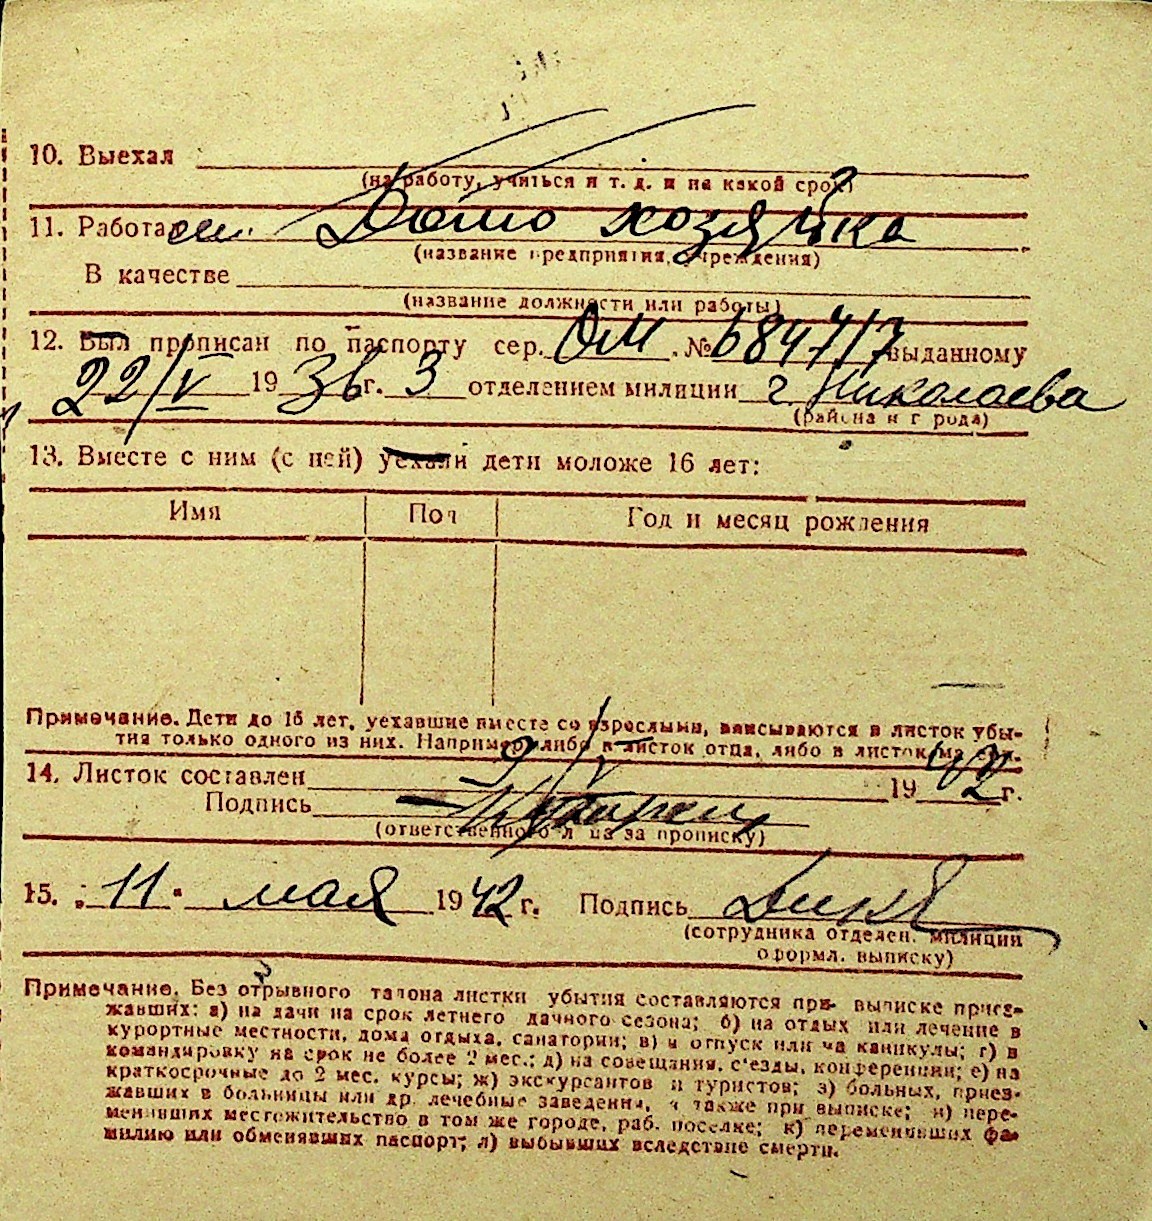 10. Выехал
(на работу, учиться и т. д. и на какой срок)
11. Работал Домо хозяйка
(название предприятия, учреждения)
В качестве
(название должности или работы)
12. Был прописан по паспорту сер. ОМ № 684717 выданному
22/V 1936 г. 3 отделением милиции г. Николаева
(района и города)
13. Вместе с ним (с ней) уехали дети моложе 16 лет:
Имя Пол Год и месяц рождения
Примечание. Дети до 16 лет, уехавшие вместе со взрослыми, вписываются в листок убы-
тия только одного из них. Например, либо в листок отца, либо в листок матери.
14. Листок составлен 9/V 1942 г.
Подпись
(ответственного лица за прописку)
15. „11" мая 1942 г. Подпись
(сотрудника отделен. милиции
оформл. выписку)
Примечание. Без отрывного талона листки убытия составляются при выписке приез-
жавших: а) на дачи на срок летнего дачного сезона; б) на отдых или лечение в
курортные местности, дома отдыха, санатории; в) в отпуск или на каникулы; г) в
командировку на срок не более 2 мес.; д) на совещания, с'езды, конференции; е) на
краткосрочные до 2 мес. курсы; ж) экскурсантов и туристов; з) больных, приез-
жавших в больницы или др. лечебные заведения, а также при выписке; и) пере-
менивших местожительство в том же городе, раб. поселке; к) переменивших фа-
милию или обменявших паспорт; л) выбывших вследствие смерти.